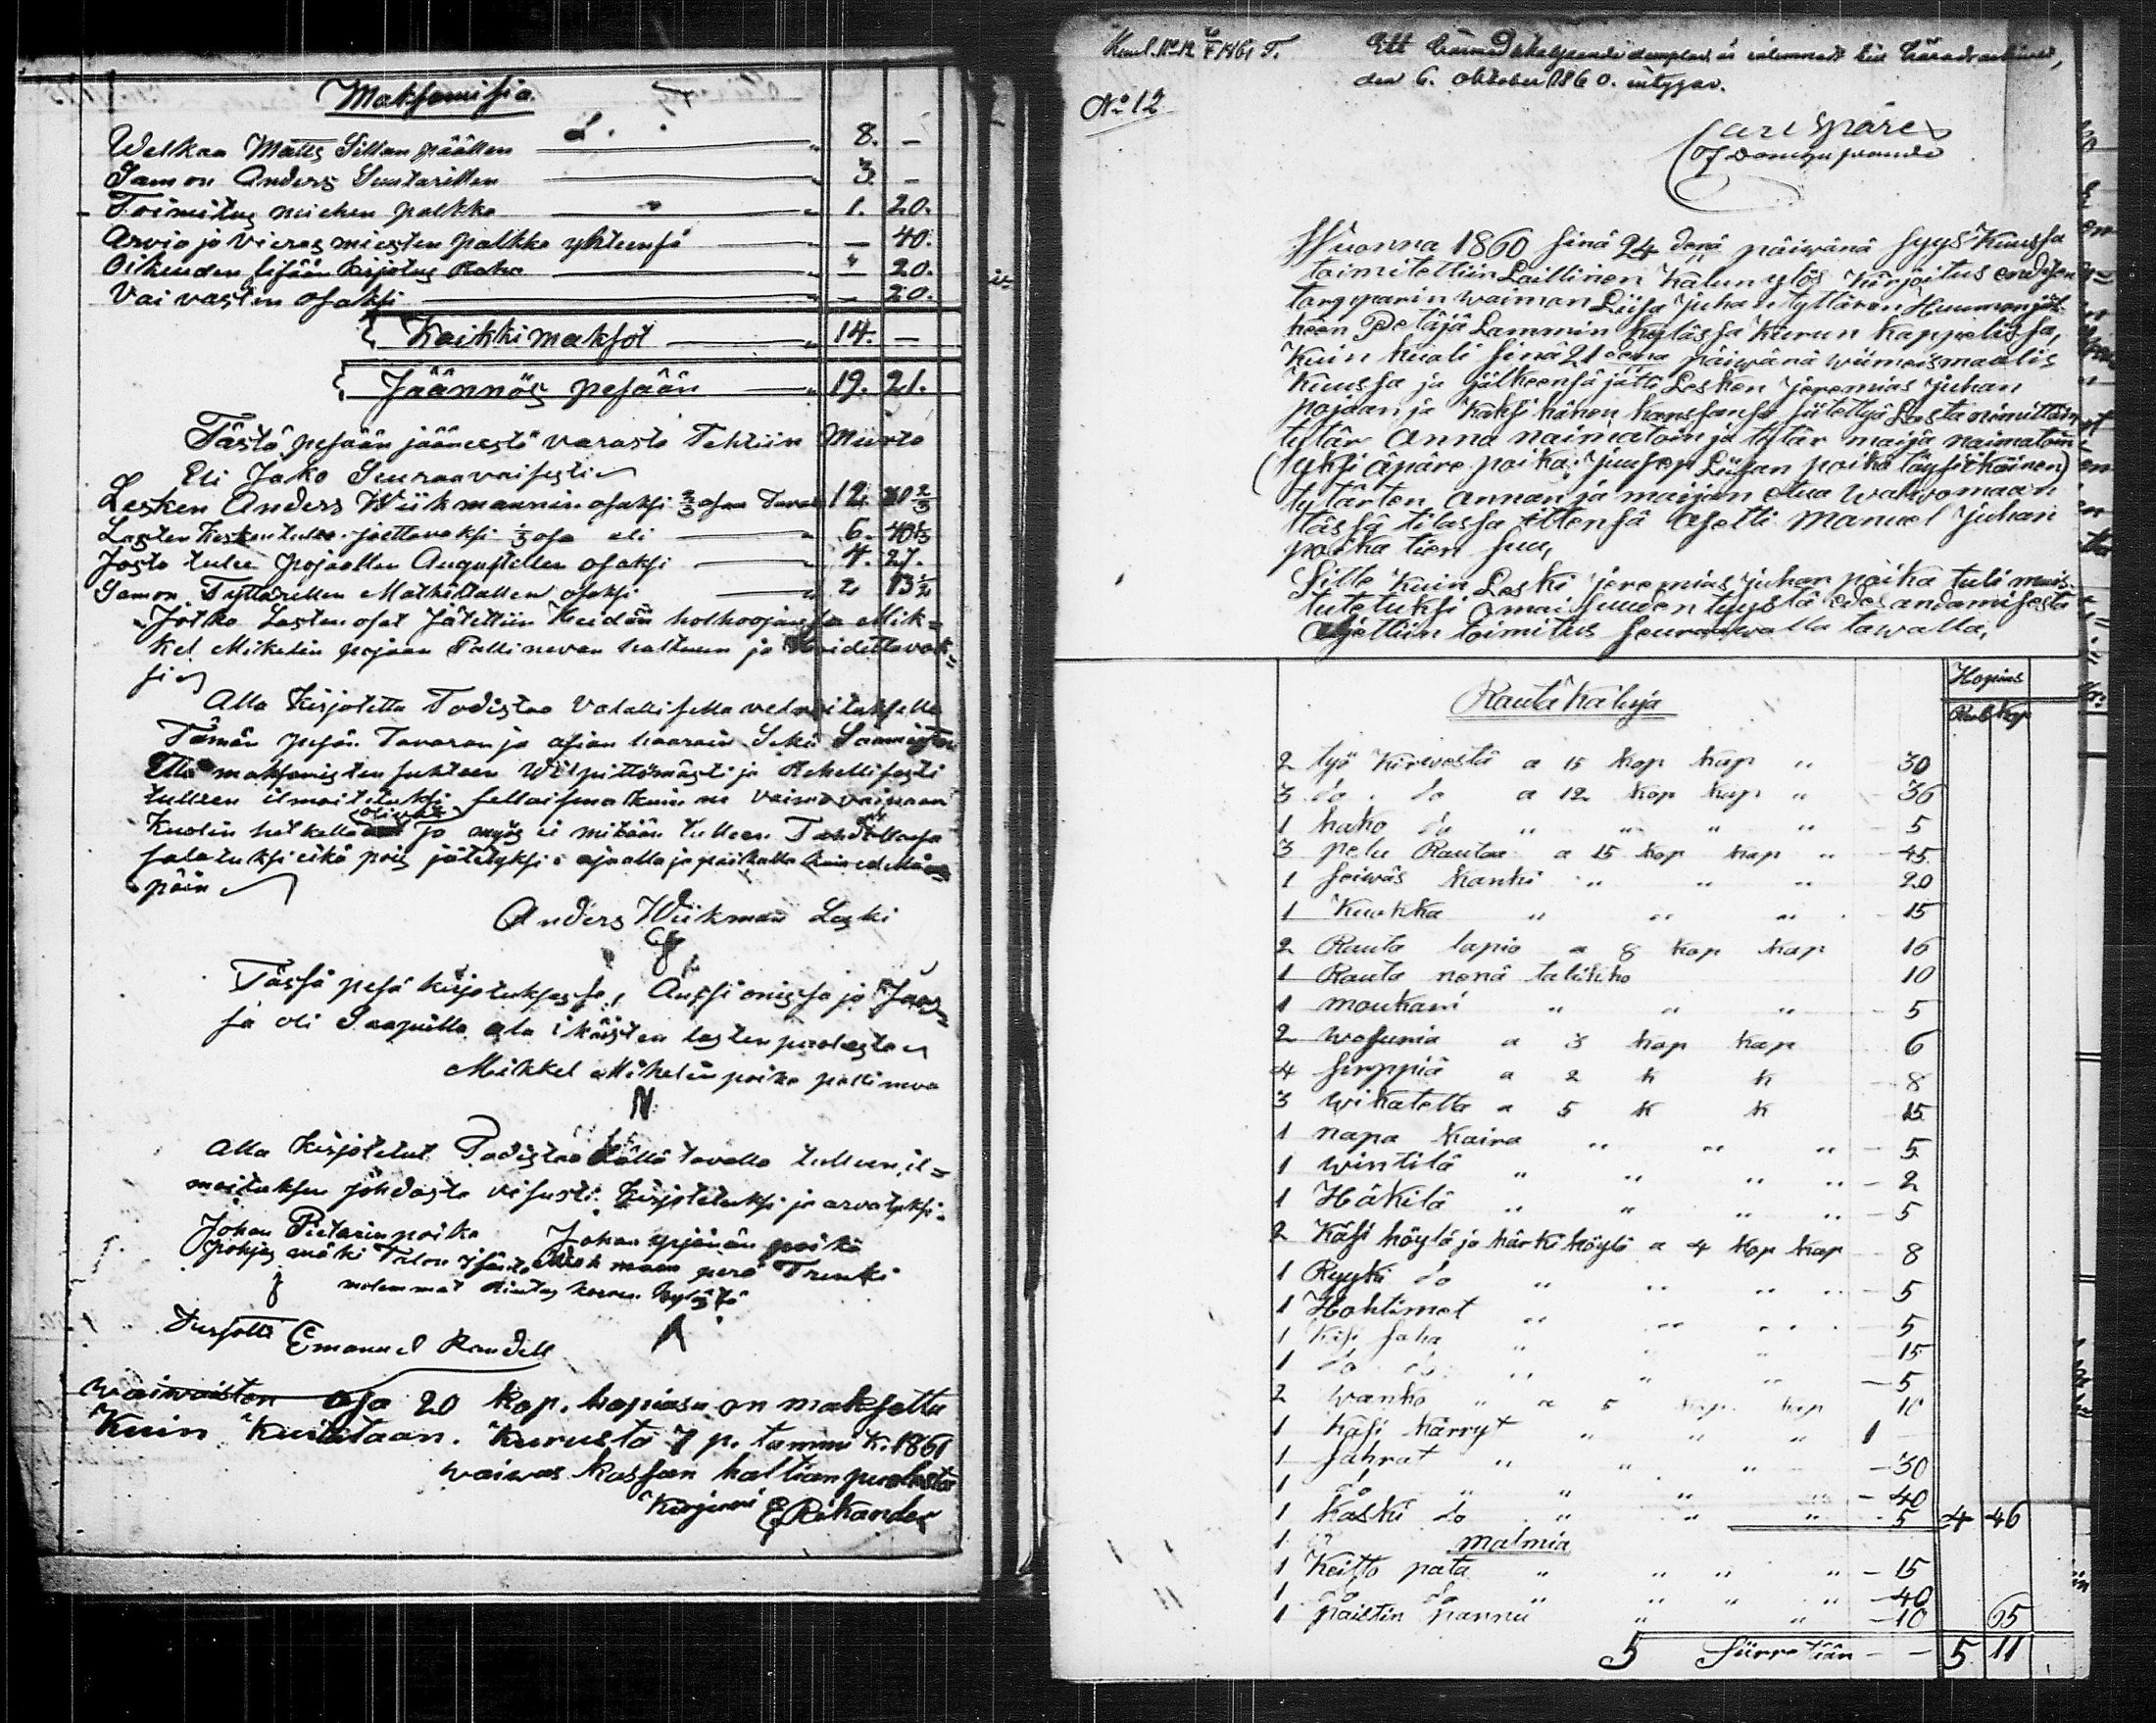 Maksamisia.
Welkaa Matts Sillanpäällen 8. —
Samon Anders Suutarillen 3. —
Toimitus miehen palkka 1. 20.
Arvio ja Vieras miesten palkka yhteensä — 40.
Oikeuden sisään kirjotus Raha — 20.
Vaivasten osaksi — 20.
Kaikki maksot 14. —
Jäännös pesään 19. 21.
Tästä pesään jääneestä varasta Tehtiin Muuto
Eli Jako Seuraavaisesti
Lesken Anders Wiikmannin osaksi 2/3 osaa 12. 80 2/3
Lasten Kesken tulee jaettavaksi 1/3 osa eli 6. 40 1/3
Josta tulee pojallen Augustellen osaksi 4. 27.
Samon Tyttärillen Mathillallen osaksi 2 13 1/2
Jotka Lasten osat Jätettiin Heidän holhoojansa Mik=
kel Mikelin pojaan Pallinevan haltuun ja Hoidettavak=
si
Alla Kirjotettu Todistaa Valallisella velvoituksella
Tämän pesän Tavaran ja asian haarain Sekä Saamisten
Että maksamisten suhteen Wilpittömästi ja Rehellisesti
tulleen ilmoitetuksi sellaisena kuin ne vaimo vainaan
Kuolin hetkellä olivat ja myös ei mitään tulleen Tahdollansa
salatuksi eikä pois jätetyksi: ajaalla ja paikalla kuin edellä
päin
Anders Wiikman Leski
Tässä pesä kirjotuksessa, Auksionissa ja Jaos=
sa oli Saapuilla ala ikäisten lasten puolesta
Mikkel Mikelin poika pallineva
N
Alla Kirjotetut Todistaa tällä tavalla tulleen il=
moituksen johdosta visusti Kirjotetuksi ja arvatuksi.
Johan Pietarin poika Johan yrjänän poika
Pohjas mäki Talon Isäntä perä Trenki
molemmat kylästä
Kirjotti Emanuel Randell
waiwaisten osa 20 kop. hopiasa on maksettu
Kuin Kuitataan. Kurusta 7 p. tammi k. 1861
waiwas Kassan haltian puolesta
E. Rikander
No 12
den 6. Oktober 1860. intygar.
Carl Spåre
Wuonna 1860 sinä 24 denä päiwänä Syys Kuussa
toimitettiin Laillinen Kalun ylös Kirjoitus endisen
torpparin waiman Liisa Juhan tyttären Huuman jäl
keen Petäjä Lammin kylässä Kurun Kappelissa,
Kuin kuoli sinä 21 denä päiwänä wiimes maalis
Kuussa ja jälkeensä jätti Lesken Jeremias Juhan
pojaan ja kaksi hänen kanssansa siitettyä Lasta nimittäin,
tytär Anna naimatoin ja tytär maija naimatoin
(yksi äpäre poika, Juusep Liisan poika täysi ikäinen)
tytärten Annan ja maijan etua walwomaan
tässä tilassa ittensä asetti Manuel Juhan
poika tien suu,
Sitte Kuin Leski Jeremias Juhan poika tuli muis-
tutetuksi omaisuuden tuysta edes andamisesta
aljettiin toimitus seurawalla tawalla,
Hopias
Rubl Kop
Rauta Kaluja
2 työ Kirwestä a 15 Kop Kap " 30
3 do do a 12 Kop Kap " 36
1 hako do " " " " 5
3 pelu Rautaa a 15 Kop Kap " 45
1 seiwäs Kanki " " " 20
1 Kuokka " " " 15
2 Rauta lapio a 8 Kop Kap 16
1 Rauta nenä talikko 10
1 moukari " " " 5
2 wasaria a 3 Kop Kap 6
4 sirppiä a 2 K K 8
3 wikatetta a 5 K K 15
1 napa Kaira " " " 5
1 wintilä " " " " 2
1 Häkilä " " " " 5
2 Käsi höylä ja härki höylä a 4 Kop Kap 8
1 Ryyki do " " " " 5
1 Hohtimet " " " " 5
1 Käsi saha " " " 15
1 do do " " " 5
2 wanko " a 5 Kap Kap 10
1 Käsi Kärryt " " " 1
1 sahrat " " " 30
1 do " " " 40
1 Kaski do " " " 5 4 46
1 malmia
1 Keitto pata " " " " 15
1 do do " " " " 40
1 paistin pannu " " 10 65
5 Siirretään — — 5 11